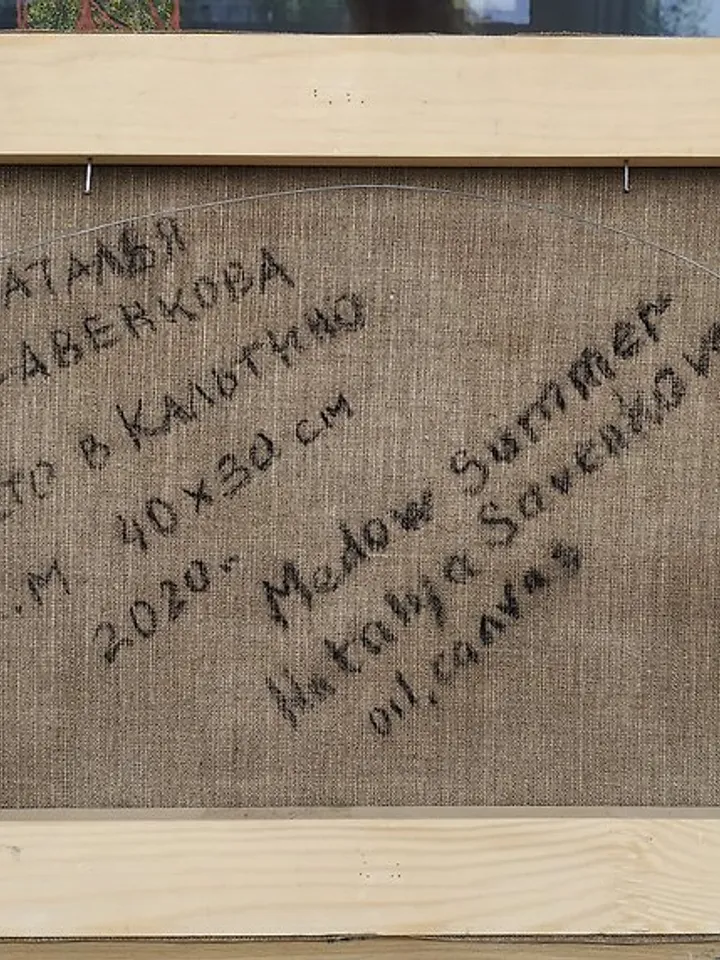 АТАЛЬЯ
АВЕНКОВА
ТО В КАЛЬТИНО
.М 40х30 см
2020г
Medow Summer
Natalya Savenkov
oil, canvas